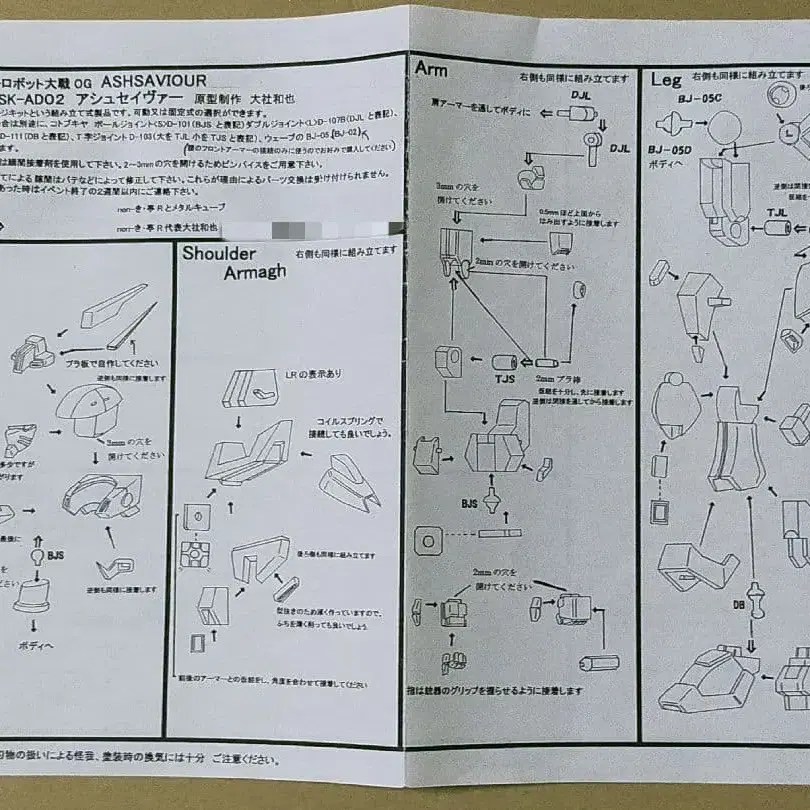 ロボット大戦 OG ASHSAVIOUR
SK-AD02 アシュセイヴァー 原型制作 大社和也
ジキットという組み立て式製品です。可動又は固定式の選択ができます。
合は別途に、コトブキヤ ボールジョイント(S)D-101(BJSと表記)ダブルジョイント(L)D-107B(DJLと表記)、
D-111(DBと表記)、T字ジョイントD-103(大をTJL 小をTJSと表記)、ウェーブのBJ-05、(BJ-02)
ます。
(腰のフロントアーマーの接続のみに使うのでお好みで購入してください)
は瞬間接着剤を使用して下さい。2~3mmの穴を開けるためピンバイスをご用意下さい。
てによる隙間はパテなどによって修正して下さい。これらが理由によるパーツ交換は受け付けられません。
あった時はイベント終了の2週間以内にご連絡下さい。
non-き・亭Rとメタルキューブ
non-き・亭R 代表大社和也
プラ板で自作してください
逆側も同様に接着します
3mmの穴を
開けてください
多少ですが
がります
最後に
BJS
を
ださい
逆側も同様に接着します
ボディへ
Shoulder
Armagh
右側も同様に組み立てます
LRの表示あり
コイルスプリングで
接続しても良いでしょう。
後ろ側も同様に組み立てます
型抜きのため薄く作っていますので、
ふちを薄く削っても良いでしょう。
前後のアーマーとの仮組をし、角度を合わせて接着してください
Arm
右側も同様に組み立てます
肩アーマーを通してボディに
DJL
DJL
3mmの穴を
開けてください
0.5mmほど上面から
はみ出すように接着します
2mmの穴を開けてください
TJS
2mmプラ棒
仮組を十分し、先に接着します
逆側は関節を通してから接着します
BJS
2mmの穴を
開けてください
指は銃器のグリップを握らせるように接着します
Leg
右側も同様に組み立てます
BJ-05C
BJ-05D
ボディへ
L
逆側は関節
仮組を
TJL
DB
刃物の扱いによる怪我、塗装時の換気には十分 ご注意ください。